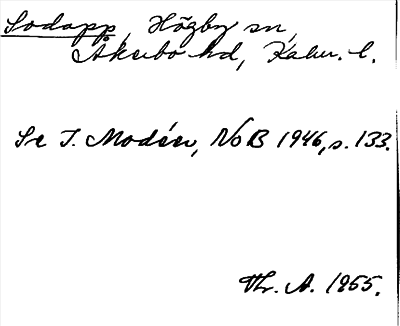 Sodapp, Högby sn,
Åkerbo hd, Kalm. l.
Se I. Modéer, NoB 1946, s. 133.
Thr. A. 1955.